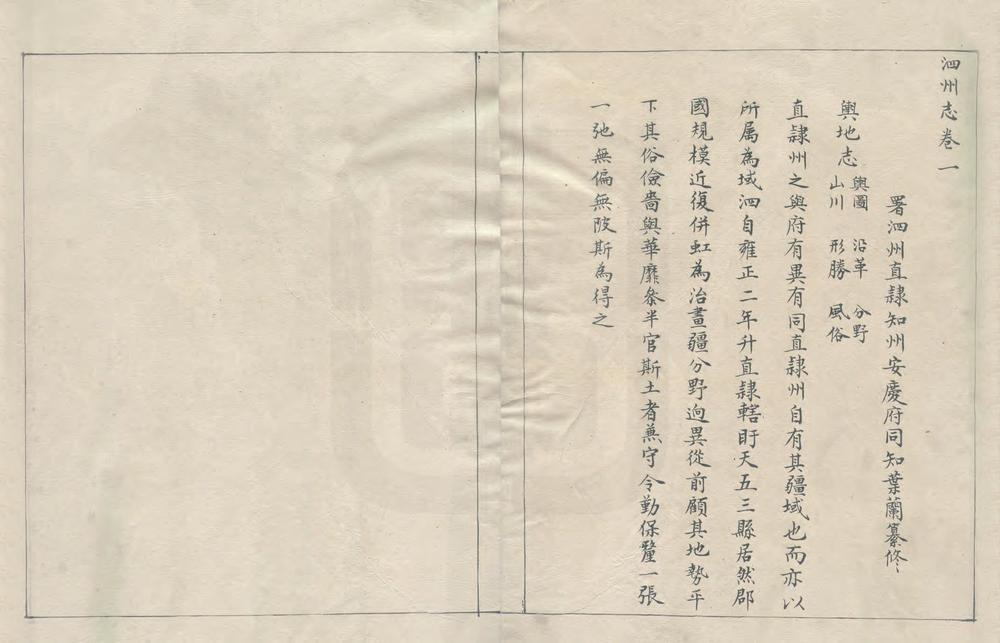 泗州志卷一
署泗州直隷知州安慶府同知葉蘭纂修
輿地志 輿圖 沿革 分野
山川 形勝 風俗
直隷州之與府有異有同直隷州自有其疆域也而亦以
所属為域泗自雍正二年升直隷轄盱天五三縣居然郡
國規模近復併虹為治畫疆分野逈異從前顧其地勢平
下其俗儉嗇與華靡叅半官斯土者蕪守令勤保釐一張
一弛無偏無陂斯為得之